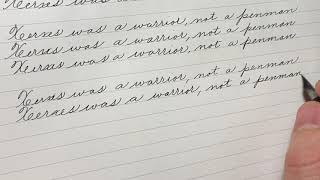 Xerxes was a warrior, not a penman
Xerxes was a warrior, not a penman
Xerxes was a warrior, not a penman
Xerxes was a warrior, not a penman
Xerxes was a warrior, not a penman
Xerxes was a warrior, not a penman